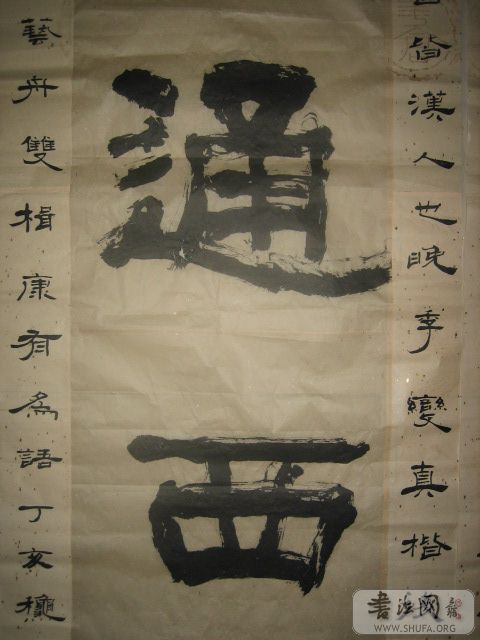 皆漢人也晚季變真楷
通西
藝舟雙楫康有爲語丁亥
書法网
WWW.SHUFA.ORG